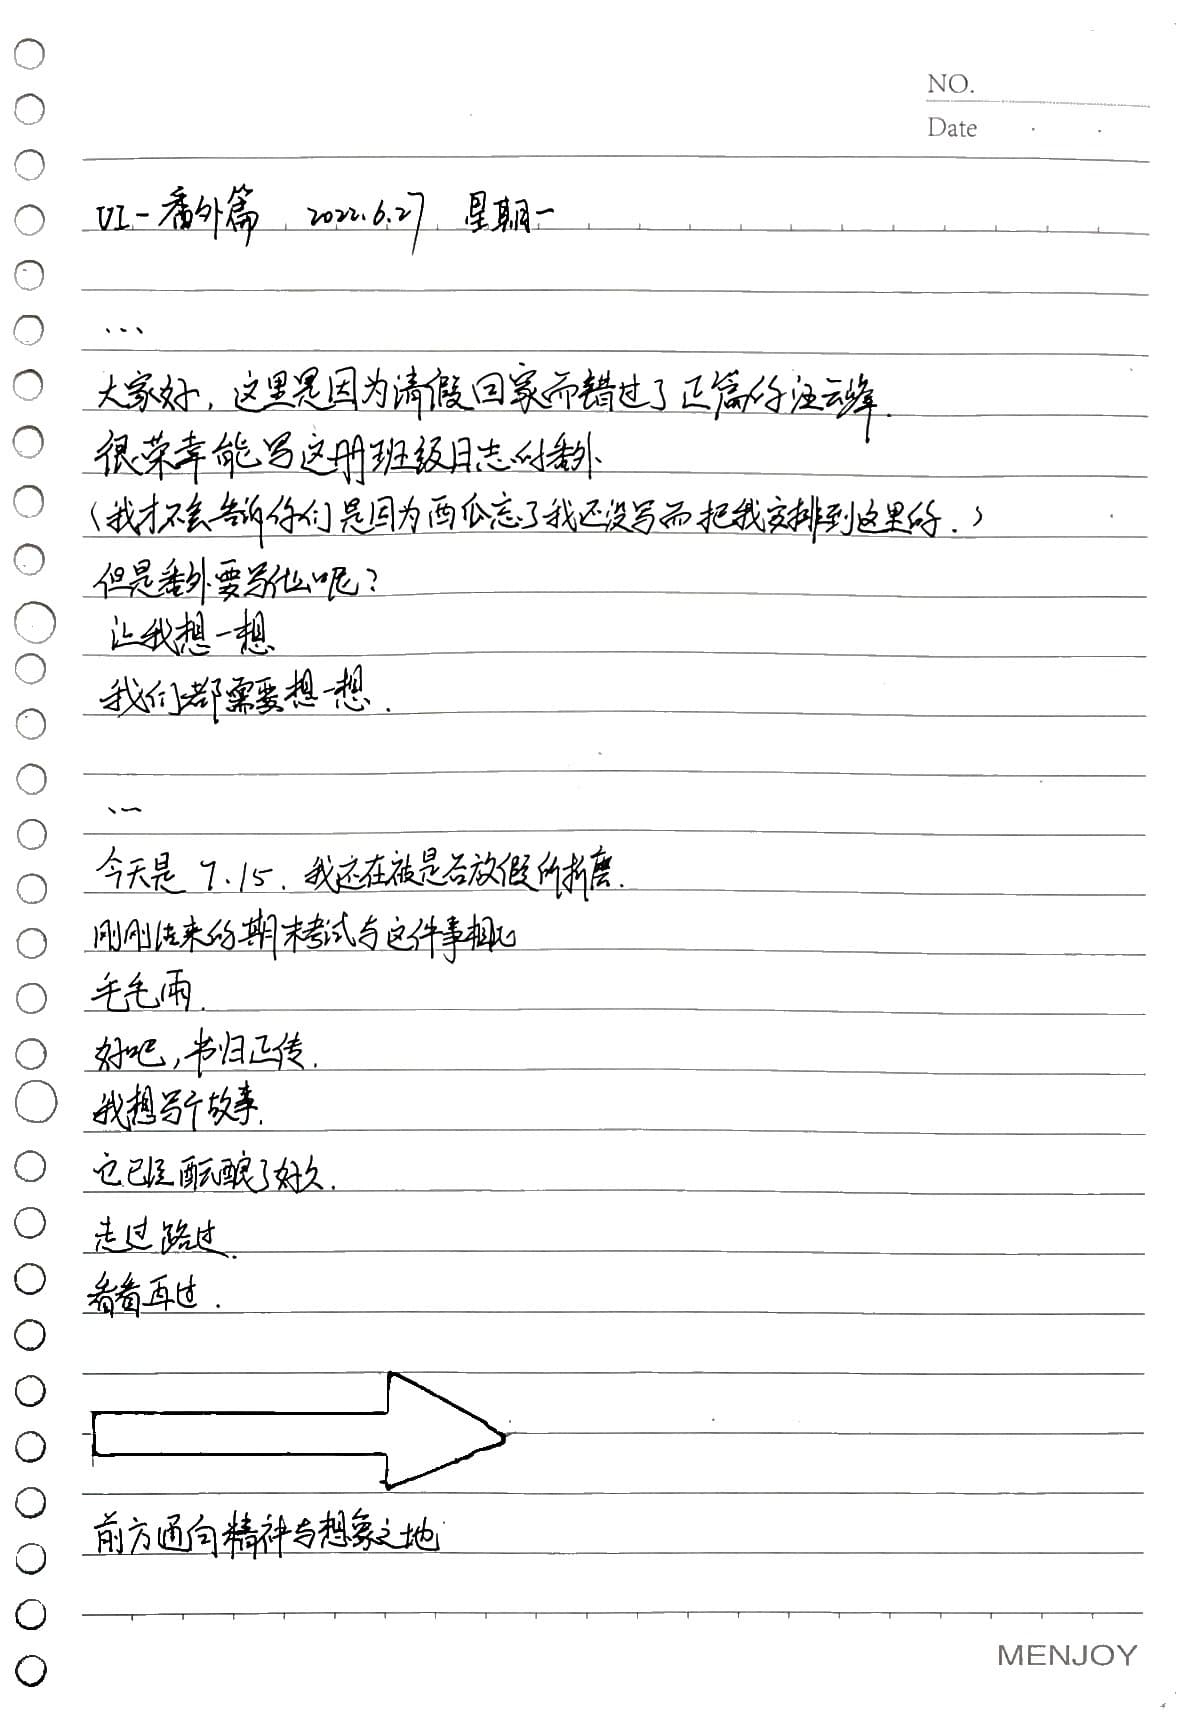 NO.
Date
VI-番外篇 2022.6.27 星期一
...
大家好，这里是因为请假回家而错过了正篇的汪云峰.
很荣幸能写这册班级日志的番外
(我才不会告诉你们是因为西瓜忘了我还没写而把我安排到这里的.)
但是番外要写什么呢?
让我想一想
我们都需要想一想.
...
今天是 7.15. 我还在被是否放假所折磨.
刚刚结束的期末考试与这件事相比
毛毛雨.
好吧, 书归正传.
我想写个故事.
它已经酝酿了好久.
走过路过.
看看再过.
前方通向精神与想象之地
MENJOY